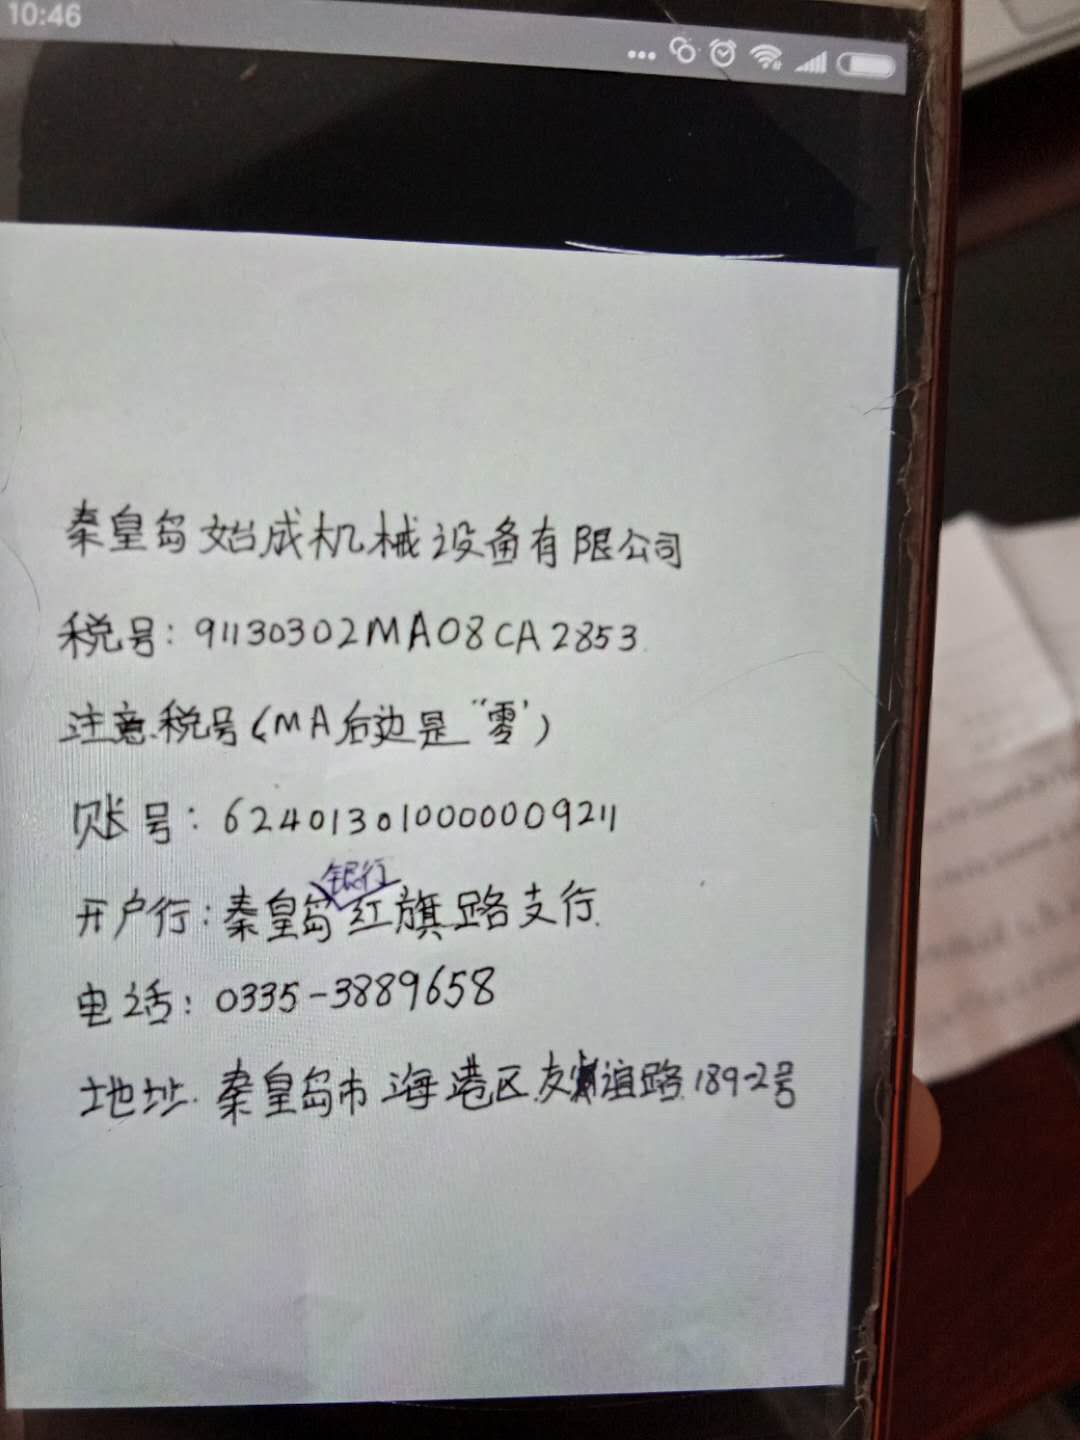 10:46
秦皇岛始成机械设备有限公司
税号：91130302MA08CA2853
注意.税号(MA后边是"零")
账号：6240130100000009211
开户行：秦皇岛银行红旗路支行.
电话：0335-3889658
地址.秦皇岛市海港区友谊路189-2号